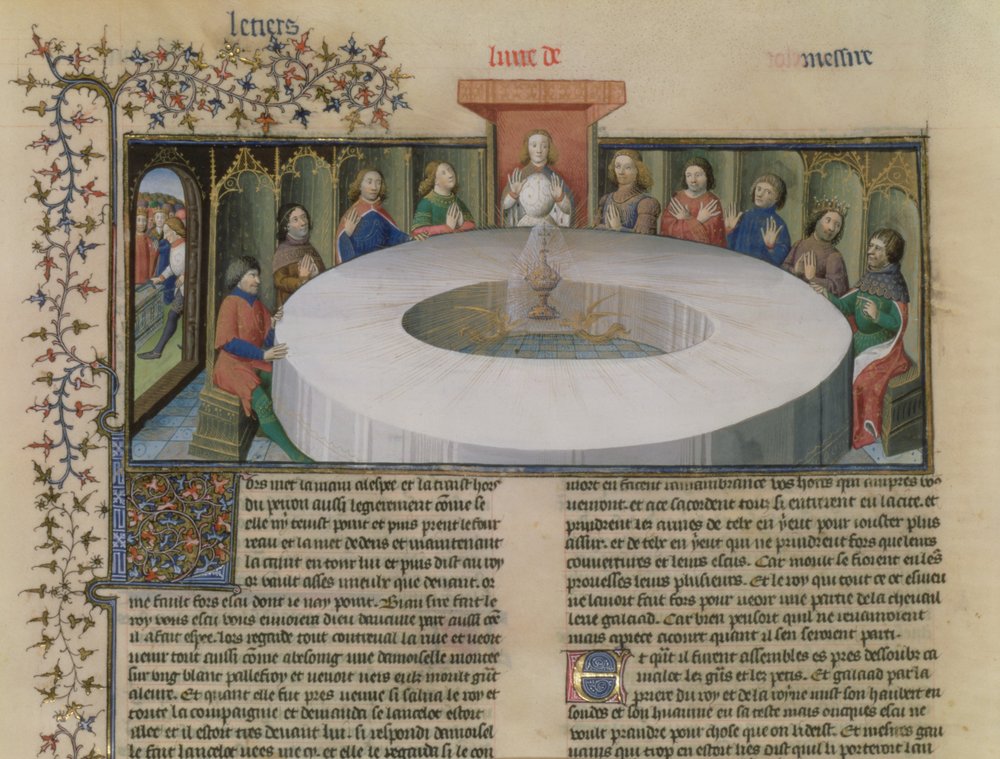 letiers
livre de
messire
Ors met la main alespee et la traist hors
du perron aussi legierement cōme se
elle ny tenist point et puis prent le four
reau et la met dedens et maintenant
la caint en tour lui et puis dist au roy
or vault asses mieulx que devant. or
me fault fors escu dont ie nay point. Biau sire fait le
roy vous escu vous envoiera dieu daucune part aussi cōe
il a fait espee. lors regarde tout contreval la rive et veoit
venir tout aussi cōme abesoing une damoiselle montee
sur ung blanc palleffroy et venoit vers eulx moult grāt
aleure. Et quant elle fut pres venue si salua le roy et
toute la compaignie et demanda se lancelot estoit
illec et il estoit tres devant lui. si respondi damoisel
le fait lancelot vees me cy. et elle le regarda si le con
mort en facent ramambrance vos hoers qui ampres vo
vemont. et ace sacordent tous si entrirent en la cite. et
prindrent les aunes de telx en y eut pour iouster plus
assur. et de telx en y eut qui ne prindrent fors que leurs
couvertures et leurs escus. Car moult se fioient en lēs
prouesses leurs plusieurs. Et le roy qui tout ce ot esmeu
ne lavoit fait fors pour veoir une partie de la chevall
lerie galaad. Car bien pensoit quil ne
mais apiece quant il sen seroient parti.
Et quāt il furent assembles es pres dessoubz ca
malot les grās et les petis. Et galaad par la
priere du roy et de la royne mist son haubert en
son dos et son hiaume en sa teste mais oncques escu ne
voult prandre pour chose que on li deist. Et messire gau
vains qui trop en estoit lies dist quil li porteroit lan